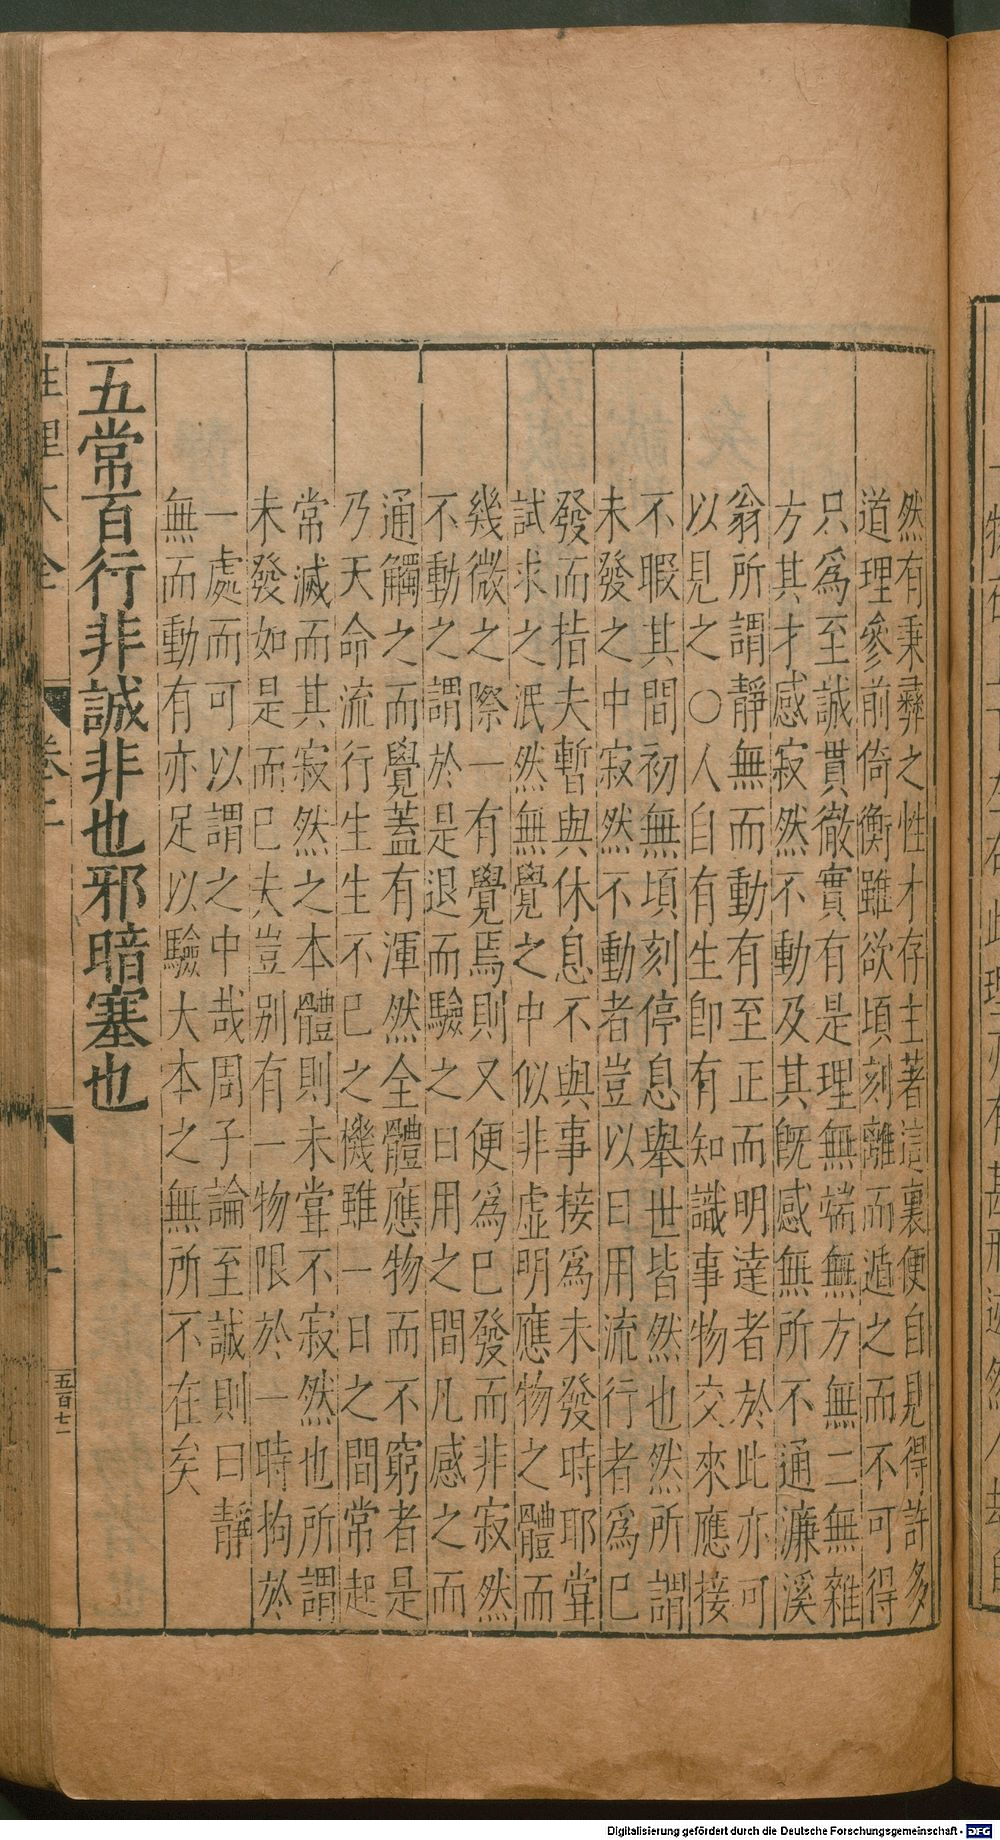 然有秉彞之性才存主著這裏便自見得許多
道理參前倚衡雖欲頃刻離而遁之而不可得
只爲至誠貫徹實有是理無端無方無二無雜
方其才感寂然不動及其旣感無所不通濂溪
翁所謂靜無而動有至正而明達者於此亦可
以見之〇人自有生卽有知識事物交來應接
不暇其間初無頃刻停息舉世皆然也然所謂
未發之中寂然不動者豈以日用流行者爲已
發而指夫暫與休息不與事接爲未發時耶嘗
試求之泯然無覺之中似非虛明應物之體而
幾微之際一有覺焉則又便爲已發而非寂然
不動之謂於是退而驗之日用之間凡感之而
通觸之而覺蓋有渾然全體應物而不窮者是
乃天命流行生生不已之機雖一日之間常起
常滅而其寂然之本體則未嘗不寂然也所謂
未發如是而已夫豈別有一物限於一時拘於
一處而可以謂之中哉周子論至誠則曰靜
無而動有亦足以驗大本之無所不在矣
五常百行非誠非也邪暗塞也
性理大全
卷二
十二
五百七
Digitalisierung gefördert durch die Deutsche Forschungsgemeinschaft - DFG